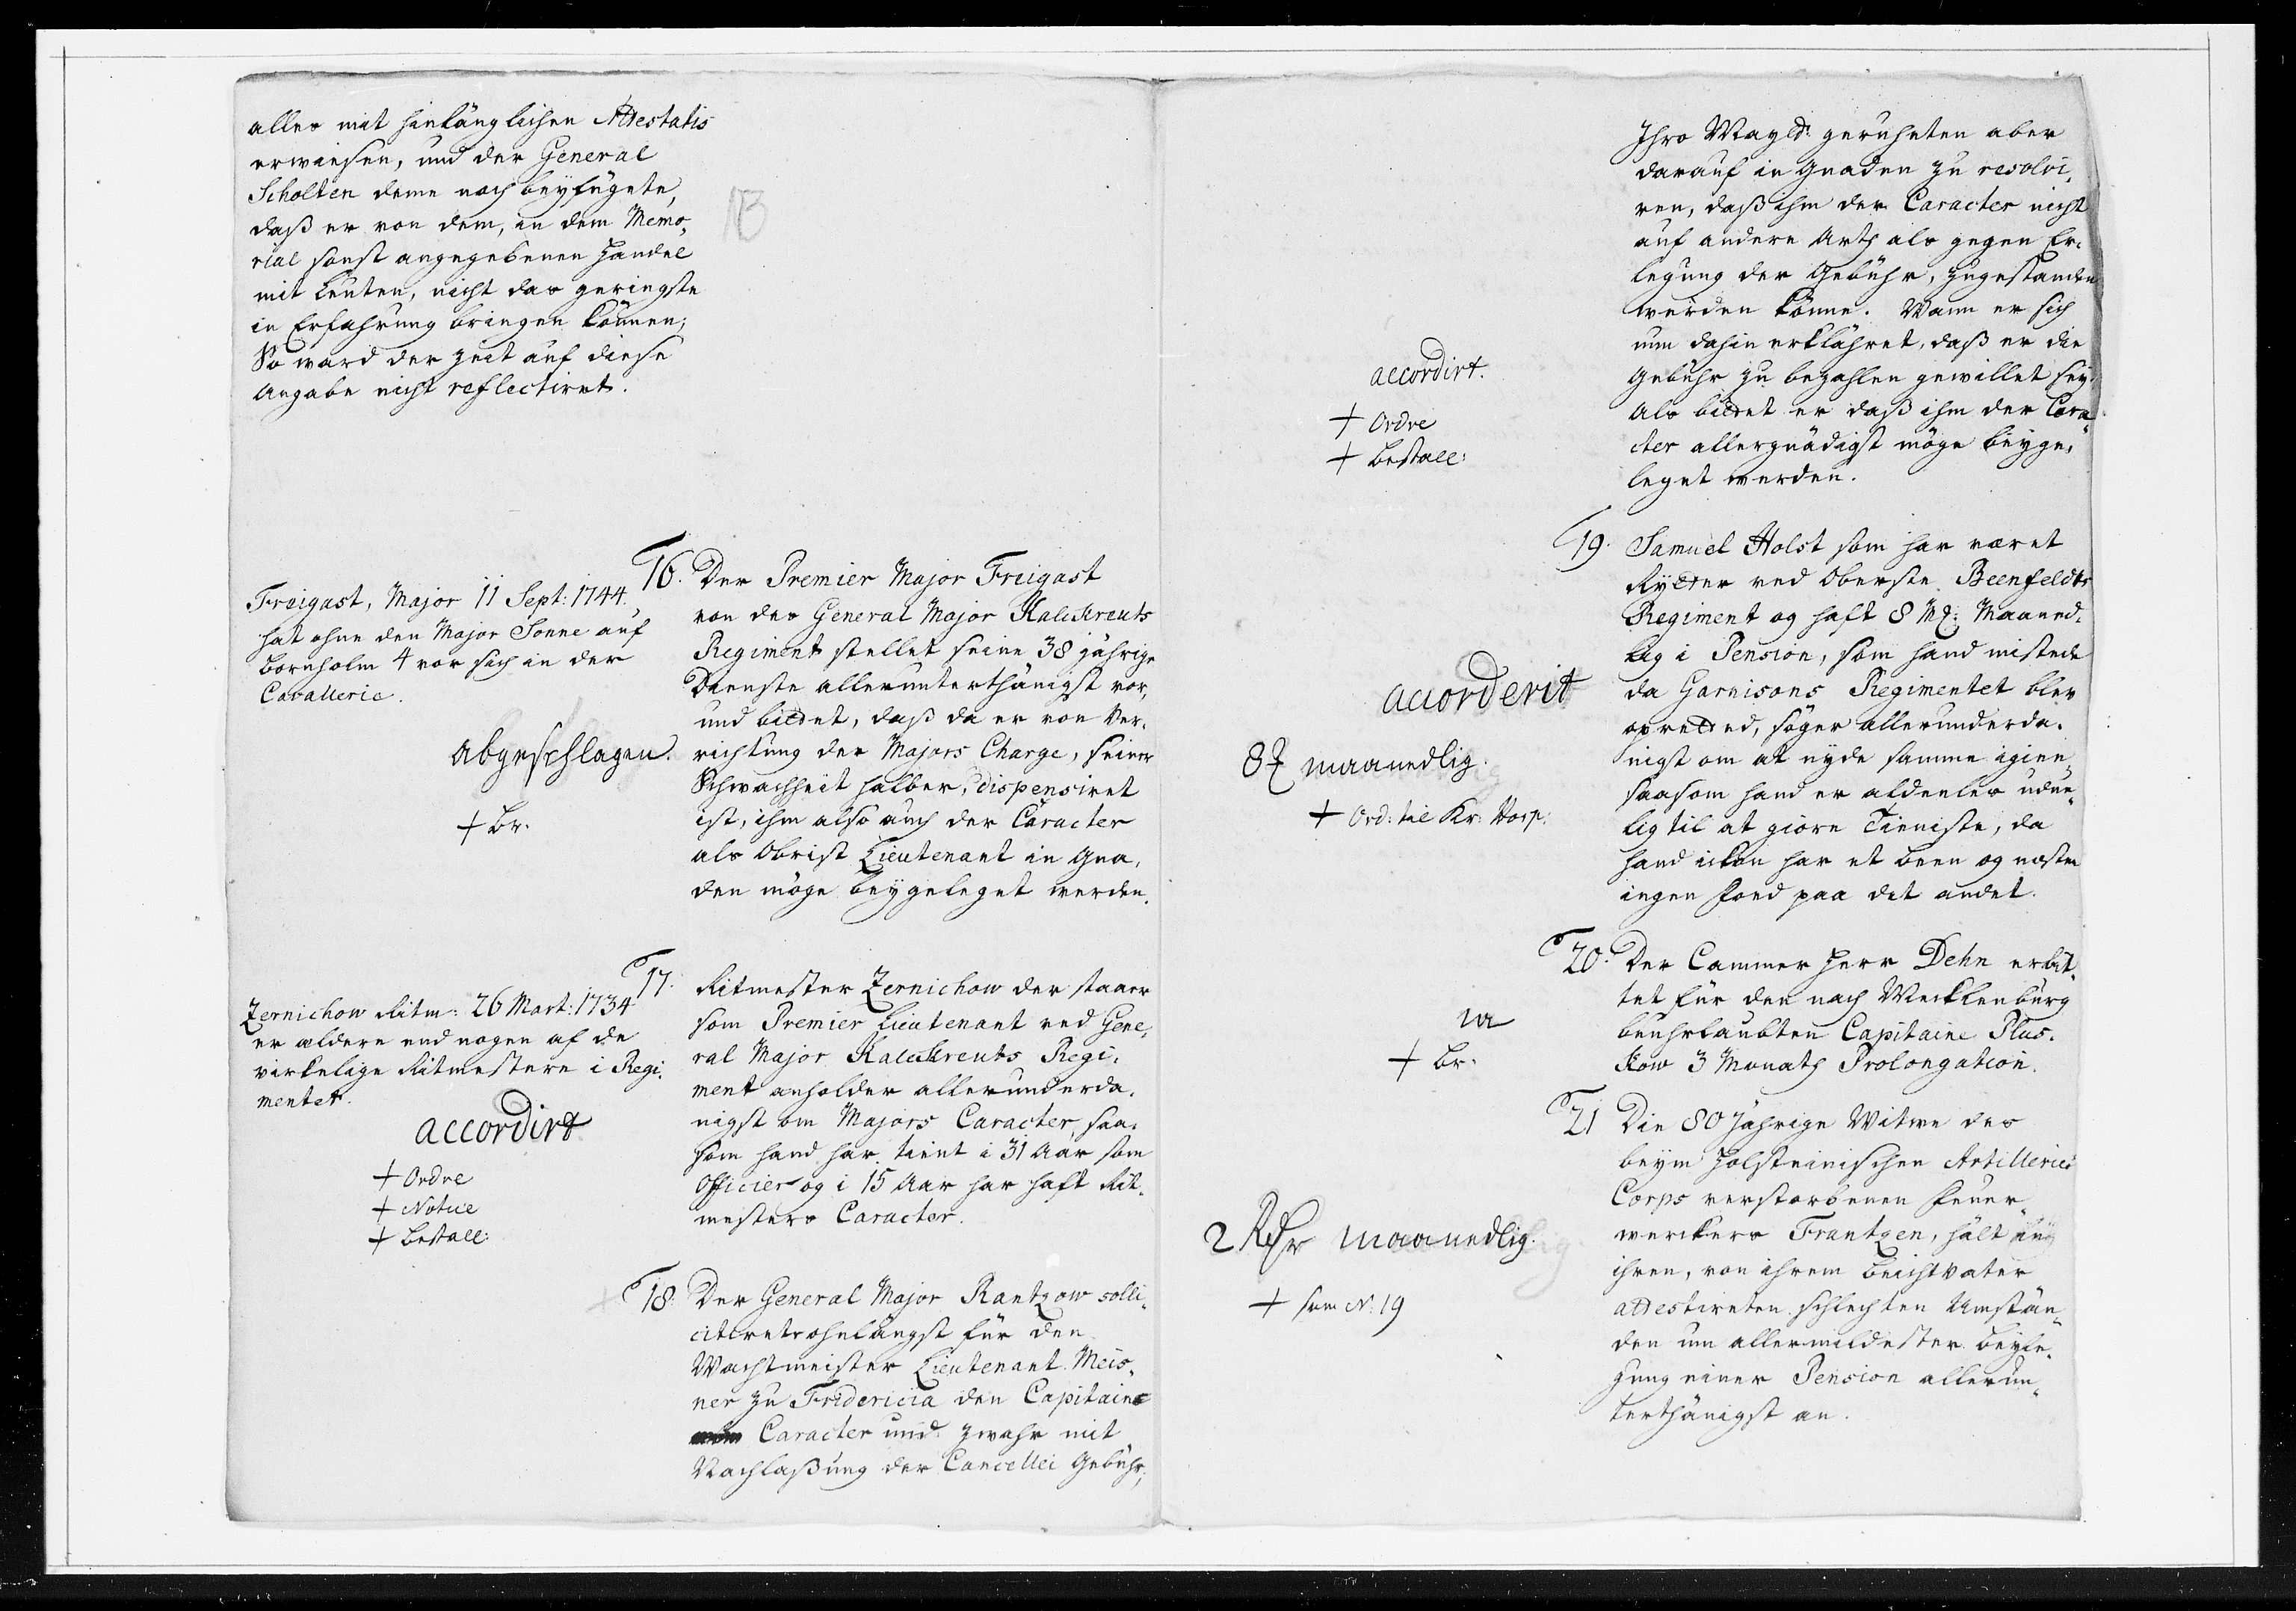 alles mit hinlänglichen Attestatis
erwiesen, und der General
Scholten deme noch beyfügete,
daß er von dem, in dem Memo¬
rial sonst angegebenen Handel
mit Leuten, nicht das geringste
in Erfahrung bringen können;
So ward der Zeit auf diese
Angabe nicht reflectiret.
Freigast, Major 11 Sept: 1744.
hat ohne den Major Sonne auf
Bornholm 4 vor sich in der
Cavallerie.
Abgeschlagen.
+ Br.
16. Der Premier Major Freigast
von des General Major Kalckreuts
Regiment stellet seine 38 jährige
Dienste allerunterthänigst vor,
und bittet, daß da er von Ver¬
richtung der Majors Charge, seiner
Schwachheit halber, dispensiret
ist, ihm also auch der Caracter
als Obrist Lieutenant in Gna¬
den möge beygeleget werden.
Zernichow Ritm: 26 Mart: 1734
er ældere end nogen af de
virkelige Ritmestere i Regi¬
mentet.
accordirt
+ Ordre
+ Notice
+ Bestall:
17. Ritmester Zernichow der staaer
som Premier Lieutenant ved Gene¬
ral Major Kalckreuts Regi¬
ment anholder allerunderda¬
nigst om Majors Caracter, saa¬
som hand har tient i 31 Aar som
Officier og i 15 Aar har haft Rit¬
mesters Caracter.
18. Der General Major Rantzow solli¬
citirete ohnlängst für den
Wachtmeister Lieutenant Meis¬
ner zu Fridericia den Capitains
Caracter und zwahr mit
Nachlaßung der Cancellei Gebühr;
Ihro Maytt: geruheten aber
darauf in Gnaden zu resolvi¬
ren, daß ihm der Caracter nicht
auf andere Arth als gegen Er¬
legung der Gebühr, zugestanden
werden könne. Wann er sich
nun dahin erklähret, daß er die
Gebühr zu bezahlen gewillet sey:
Als bittet er daß ihm der Cara¬
cter allergnädigst möge beyge¬
leget werden.
accordirt.
+ Ordre
+ Bestall:
19. Samuel Holst som har været
Rytter ved Oberste Beenfeldts
Regiment og haft 8 Mk: Maaned¬
lig i Pension, som hand mistede
da Garnisons Regimentet blev
opretted, søger allerunderda¬
nigst om at nyde samme igien,
saasom hand er aldeeles udue¬
lig til at giøre Tieniste, da
hand ickun har et been og næsten
ingen Foed paa det andet.
accorderit
8 maanedlig.
+ Ord: til Kr: Hosp:
20. Der Cammer Herr Dehn erbit¬
tet für den nach Mecklenburg
beuhrlaubten Capitaine Plus¬
kow 3 Monath Prolongation.
Ja
+ Br.
21 Die 80 Jährige Witwe des
beym Holsteinischen Artillerie
Corps verstorbenen Feuer¬
werckers Frantzen, hält bey
ihren, von ihrem Beichtvater
attestireten schlechten Umstän¬
den um allermildester Beyle¬
gung einer Pension allerun¬
terthänigst an.
2 Rdr maanedlig.
+ som N: 19